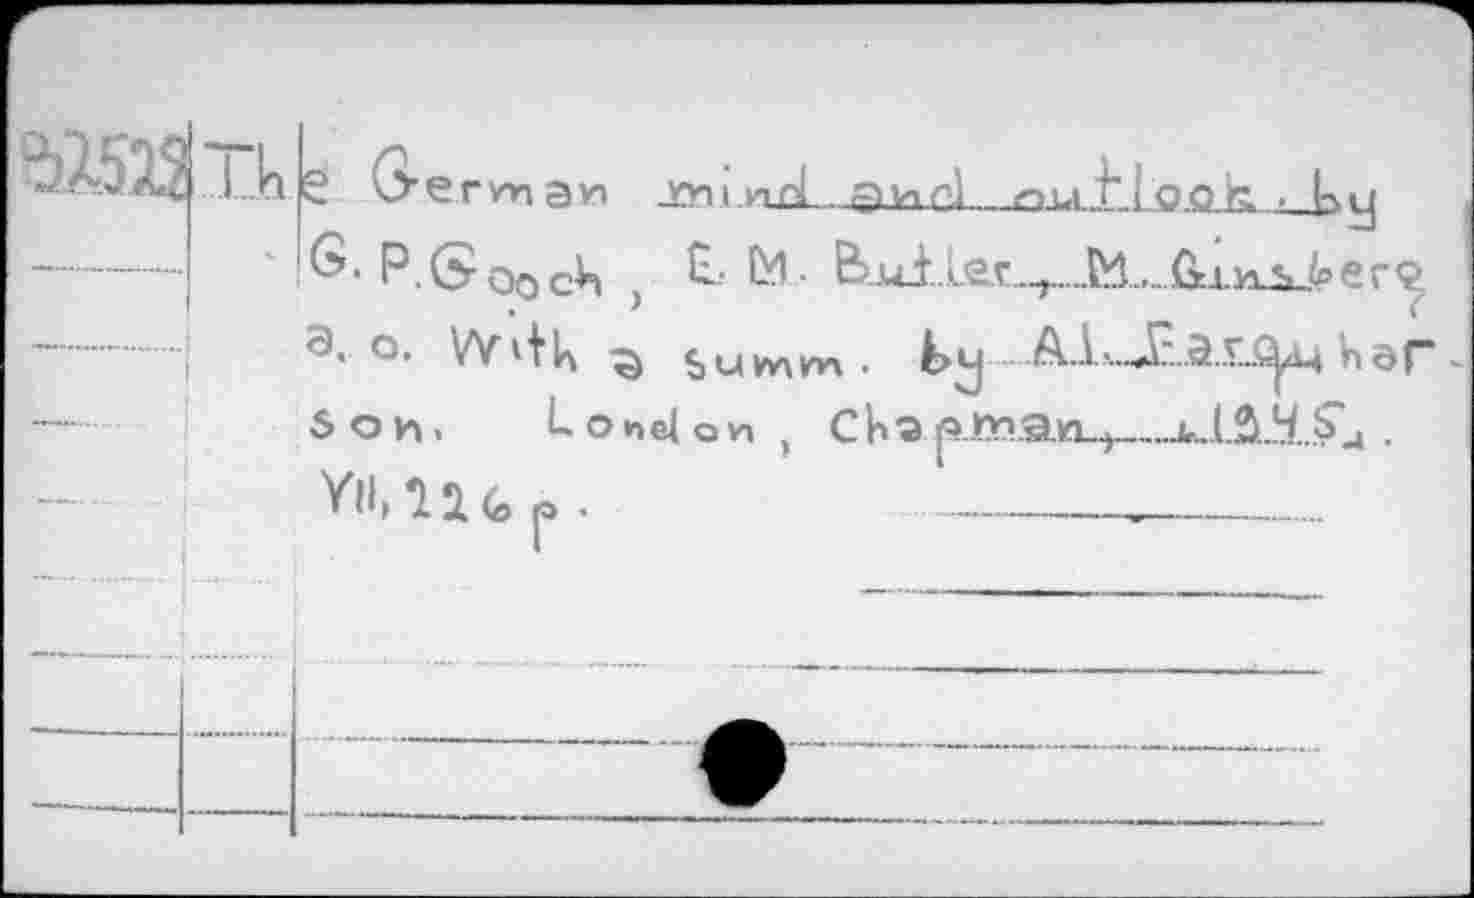 32523 The German mind and outlook. by
G. P. Gooch, E. M. Butler, M. Ginsberg
a. o. With a summ. by Al. Farquhar-
son. London, Chapman, [1945].
VII, 226 p.